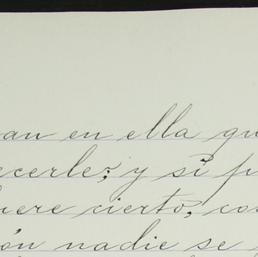 an en ella qu
ecerle; y si p
iere cierto, co
ón nadie se